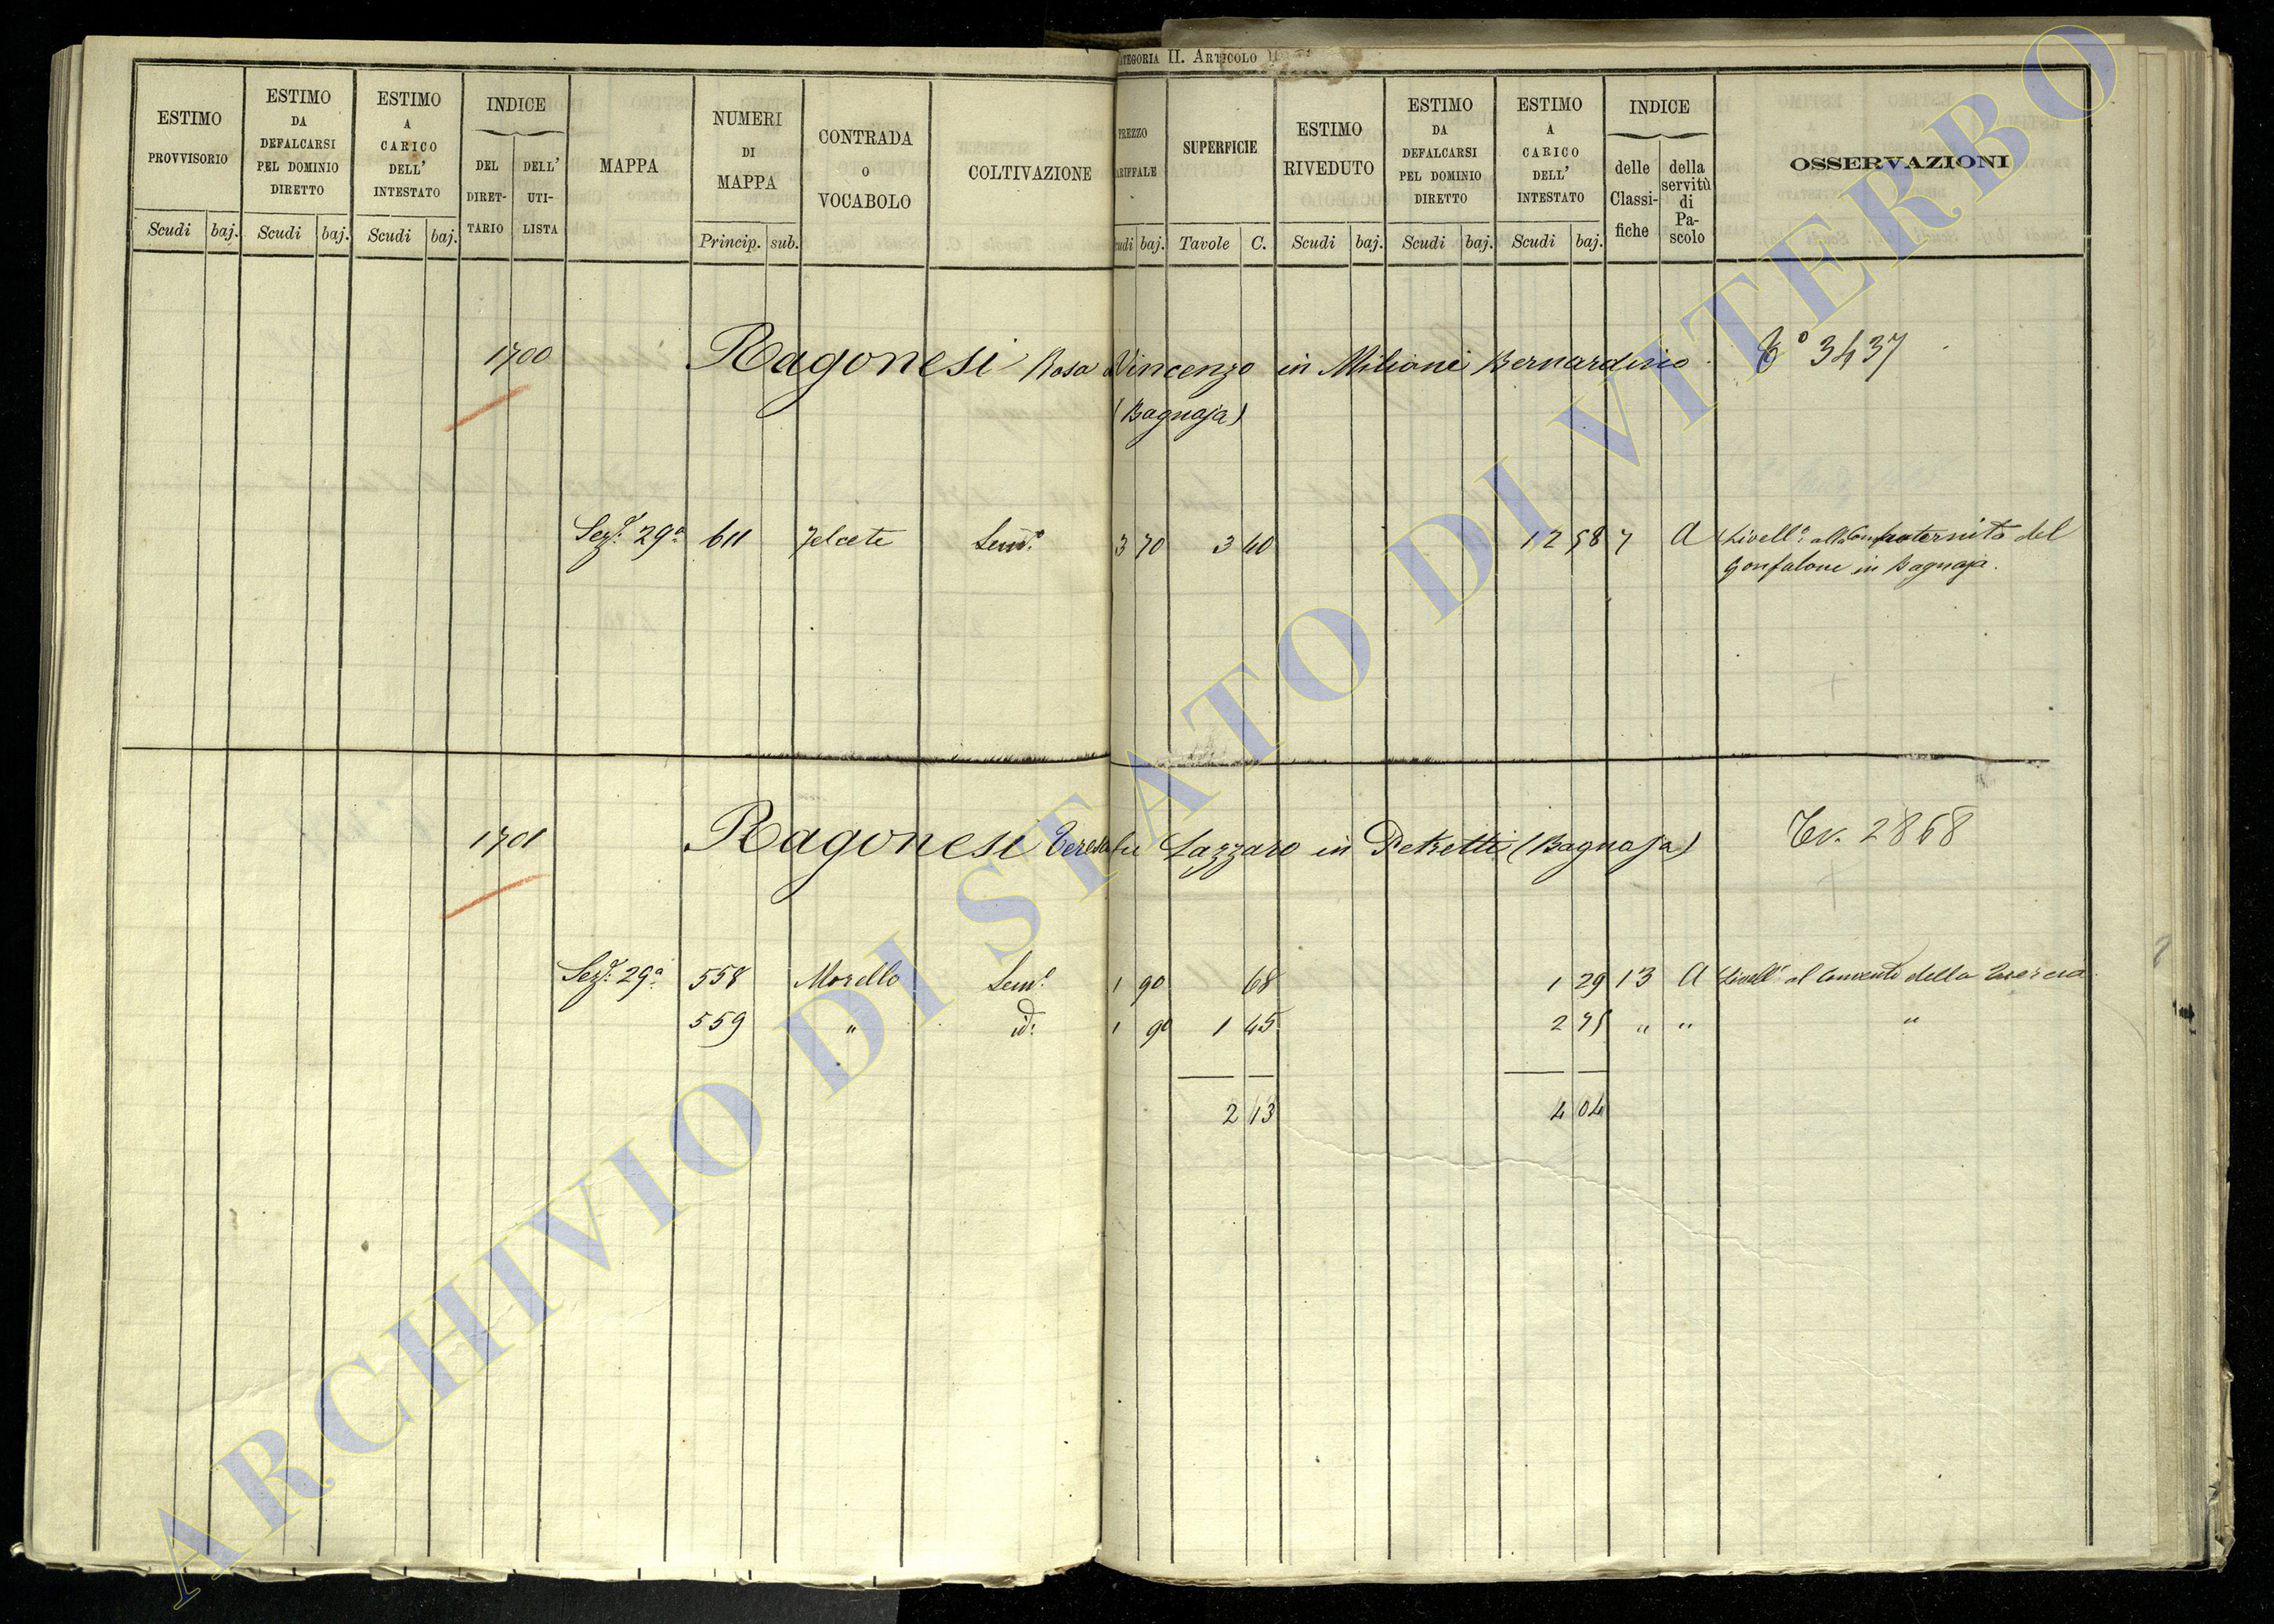 CATEGORIA II. ARTICOLO
ESTIMO PROVVISORIO
ESTIMO DA DEFALCARSI PEL DOMINIO DIRETTO
ESTIMO A CARICO DELL' INTESTATO
INDICE
DEL DIRETTARIO
DELL' UTILISTA
MAPPA
NUMERI DI MAPPA
CONTRADA O VOCABOLO
COLTIVAZIONE
PREZZO TARIFFALE
SUPERFICIE
ESTIMO RIVEDUTO
ESTIMO DA DEFALCARSI PEL DOMINIO DIRETTO
ESTIMO A CARICO DELL' INTESTATO
INDICE
delle Classifiche
della servitù di Pascolo
OSSERVAZIONI
Scudi baj. Scudi baj. Scudi baj. Princip. sub. Scudi baj. Tavole C. Scudi baj. Scudi baj. Scudi baj.
1700 Ragonesi Rosa Vincenzo in Milioni Bernardino. 3437
(Bagnaja)
Sez. 29a 611 Semo 3 70 3 40 12 58 7 A Livello alla Confraternita del
Gonfalone in Bagnaja.
1701 Ragonesi Teresa fu Lazzaro in Petretti (Bagnaja) Tv. 2868
Sez. 29a 558 Morello Semo 1 90 68 1 29 13 A Livello al Convento della Quercia
559 " id: 1 90 1 45 2 75 " " "
2 13 4 04
ARCHIVIO DI STATO DI VITERBO